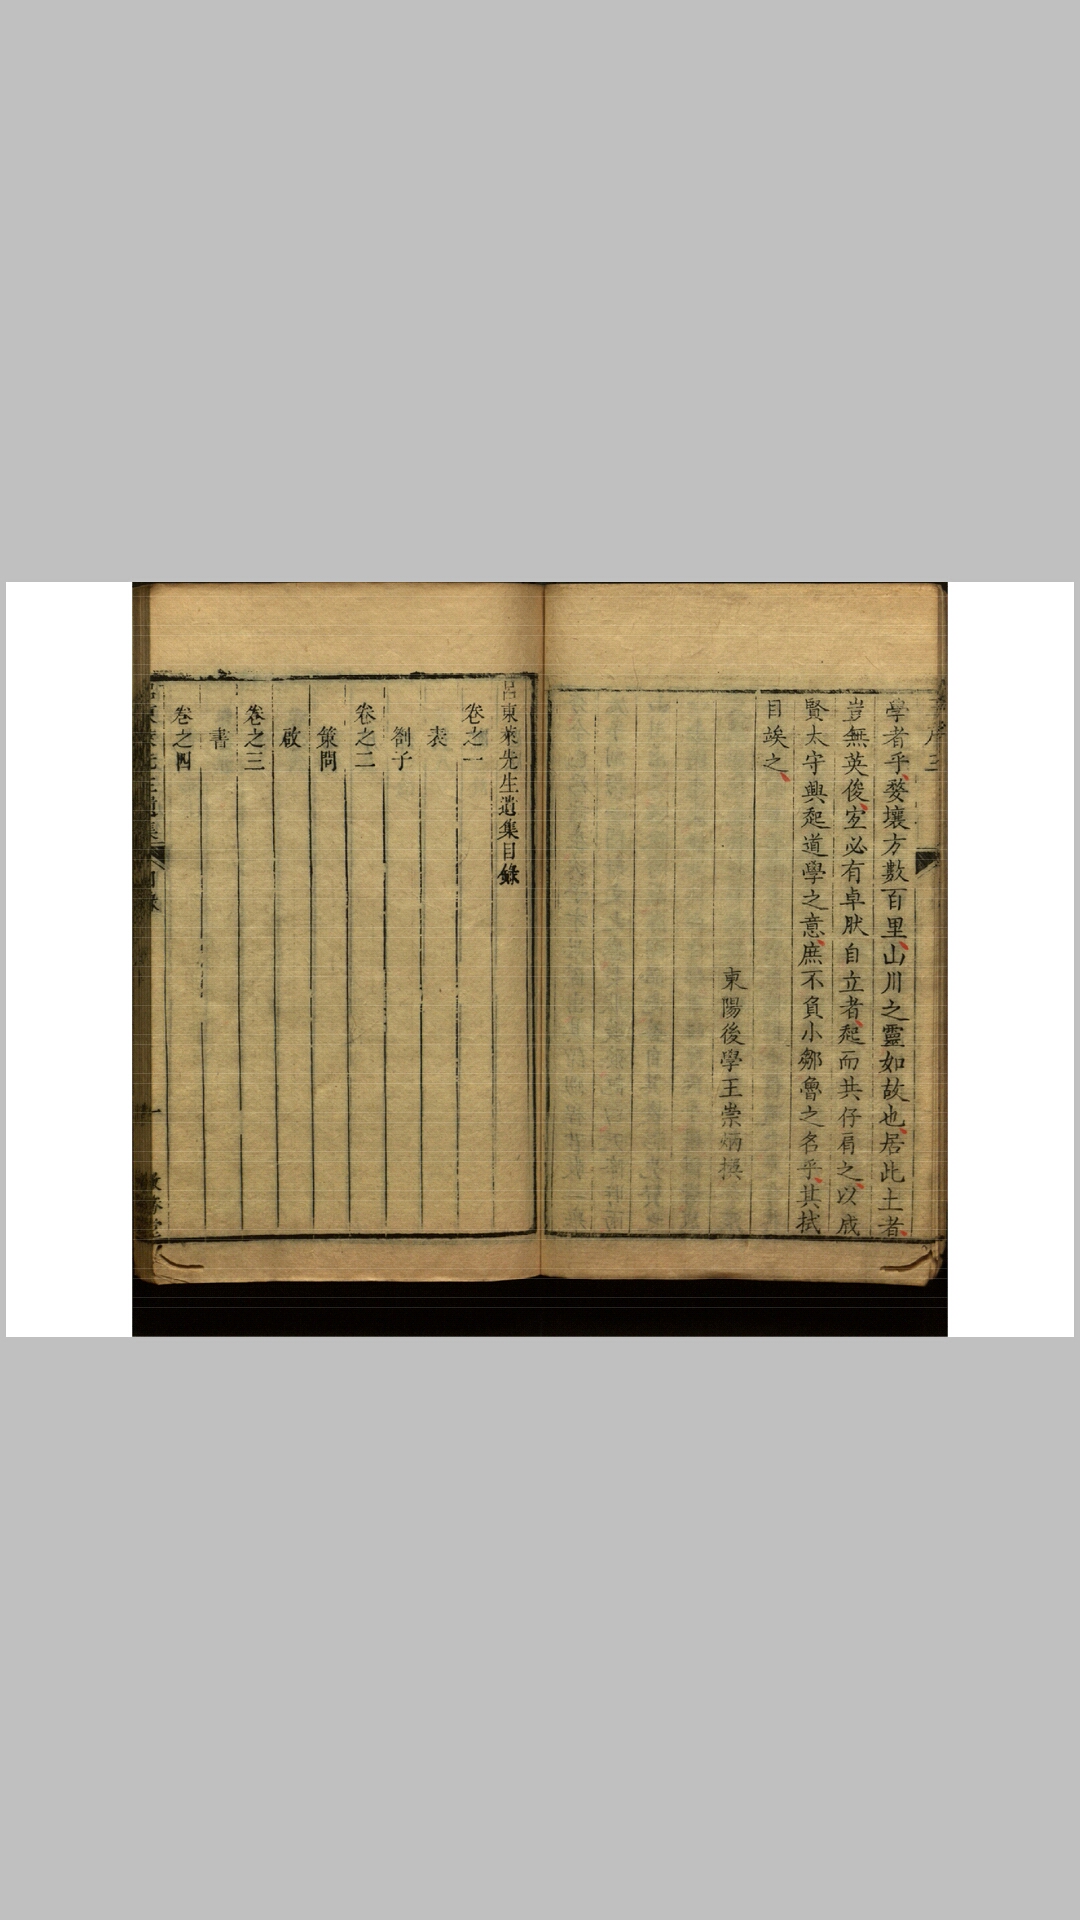 學者乎婺壤方數百里山川之靈如故也居此土者
豈無英俊宐必有卓肰自立者起而共仔肩之以成
賢太守興起道學之意庶不負小鄒魯之名乎其拭
目竢之
東陽後學王崇炳撰
呂東萊先生遺集目錄
卷之一
表
劄子
卷之二
策問
啟
卷之三
書
卷之四